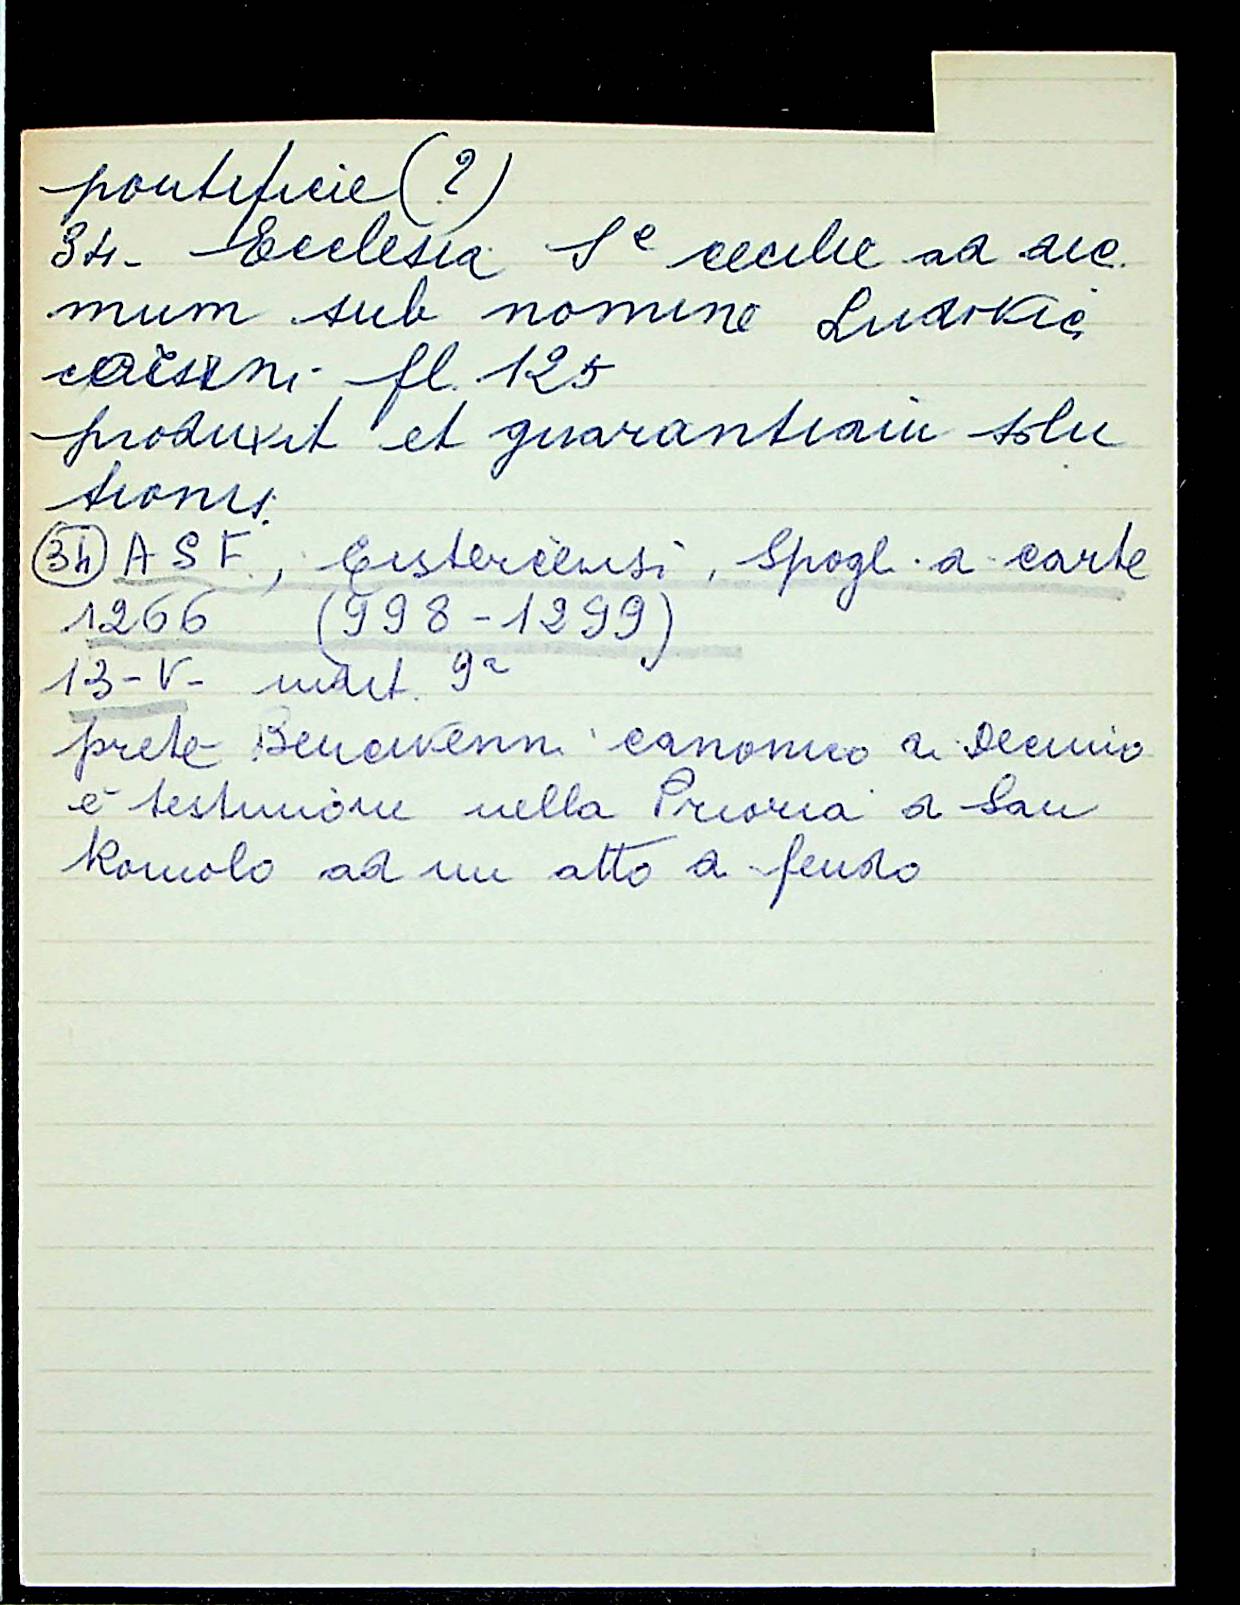 pontificie (?)
34. Ecclesia Se cecilie ad dec.
mum sub nomine Ludovici
fl. 125
produxit et guarantiam solu
tionis.
34 A S F., Cistercensi, Spogli di carte
1266 (998-1299)
13-V- indict. 9a
prete Benivenni canonico di Decimo
è testimone nella Prioria di San
Romolo ad un atto di feudo